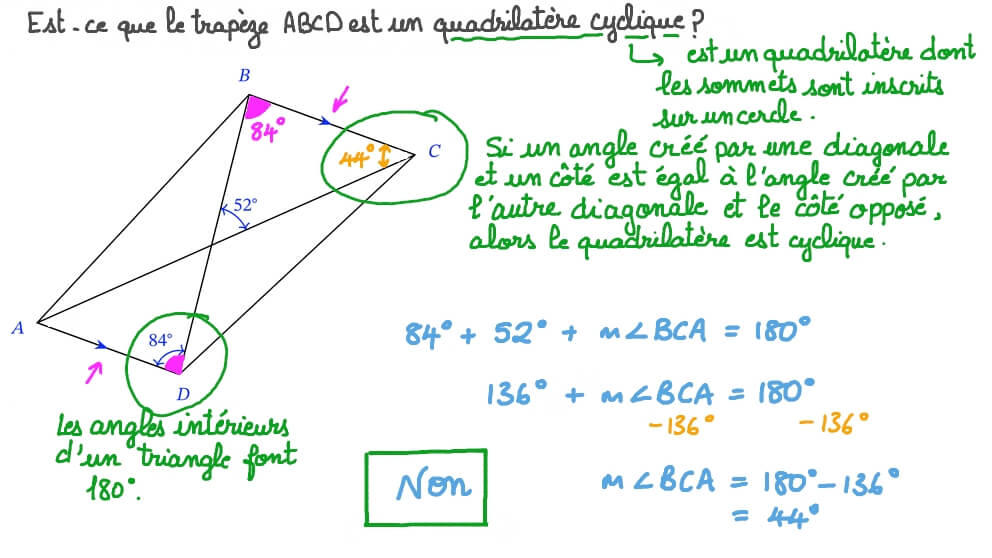 Est-ce que le trapèze ABCD est un quadrilatère cyclique ?
est un quadrilatère dont
les sommets sont inscrits
sur un cercle.
B
84°
44°
C
Si un angle créé par une diagonale
et un côté est égal à l'angle créé par
l'autre diagonale et le côté opposé,
alors le quadrilatère est cyclique.
52°
A
84°
D
84° + 52° + m∠BCA = 180°
136° + m∠BCA = 180°
-136° -136°
les angles intérieurs
d'un triangle font
180°.
Non
m∠BCA = 180° - 136°
= 44°